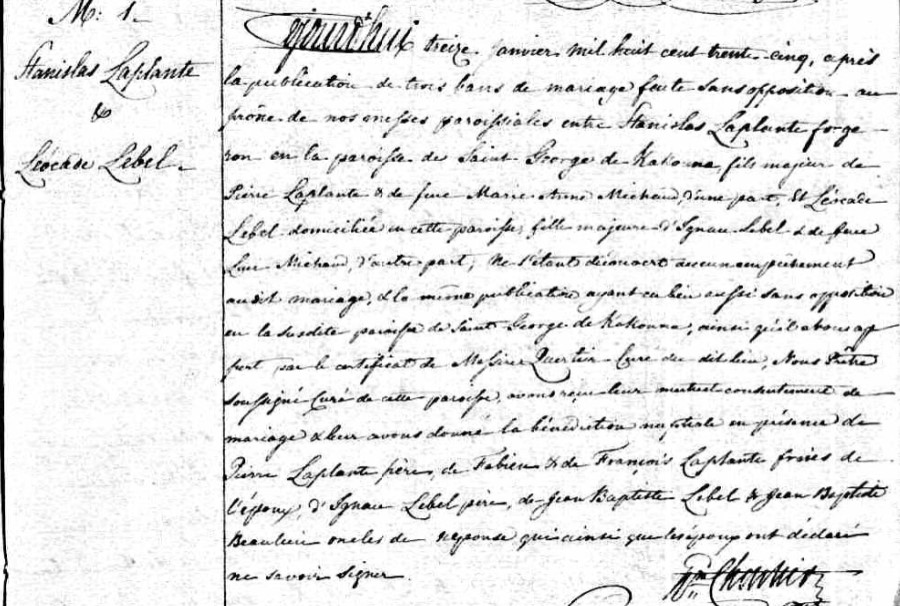 M: 1.
Stanislas Laplante
&
Léocade Lebel.
Aujourd'hui treize janvier mil huit cent trente-cinq, après
la publication de trois bans de mariage faite sans opposition au
prône de nos messes paroissiales entre Stanislas Laplante forge-
ron en la paroisse de Saint George de Kakouna, fils majeur de
Pierre Laplante & de feue Marie Anne Michaud, d'une part, Et Léocade
Lebel domiciliée en cette paroisse, fille majeure d'Ignace Lebel & de feue
Luce Michaud, d'autre part; ne s'étant découvert aucun empêchement
audit mariage, & la même publication ayant eu lieu aussi sans opposition
en la susdite paroisse de Saint George de Kakouna, ainsi qu'il a
par le certificat de Messire Curé du dit lieu, Nous Prêtre
soussigné Curé de cette paroisse, avons reçu leur mutuel consentement de
mariage & leur avons donné la bénédiction nuptiale en présence de
Pierre Laplante père, de Fabien & de François Laplante frères de
l'époux, d'Ignace Lebel père, de Jean Baptiste Lebel & Jean Baptiste
Beaulieu oncles de l'épouse qui ainsi que les époux ont déclaré
ne savoir signer.